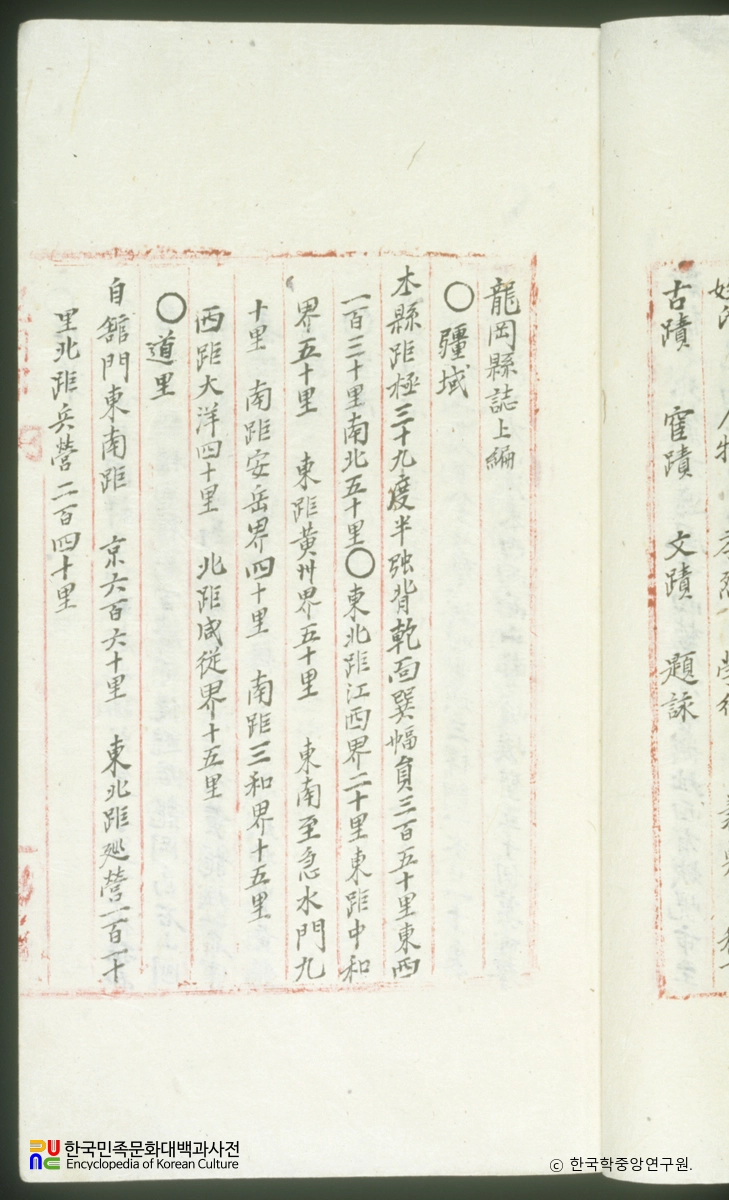 古蹟 宦蹟 文蹟 題詠
龍岡縣誌上編
○疆域
本縣距極三十九度半强背乾面巽幅員三百五十里東西
一百三十里南北五十里○東北距江西界二十里東距中和
界五十里 東距黃州界五十里 東南至急水門九
十里 南距安岳界四十里 南距三和界十五里
西距大洋四十里 北距咸從界十五里
○道里
自舘門東南距 京六百六十里 東北距廵營一百一十
里北距兵營二百四十里
한국민족문화대백과사전
Encyclopedia of Korean Culture
ⓒ 한국학중앙연구원.